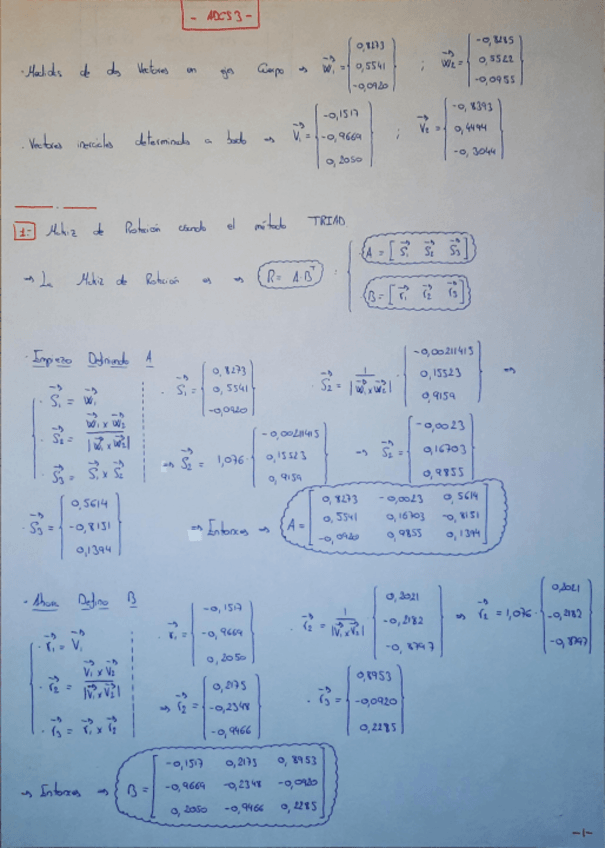 - ADCS 3 -
· Medidas de dos Vectores en ejes Cuerpo ⇒ W⃗₁ = { 0,8273 0,5541 -0,0920 } ; W⃗₂ = { -0,8285 0,5522 -0,0955 }
· Vectores inerciales determinado a bordo ⇒ V⃗₁ = { -0,1517 -0,9669 0,2050 } ; V⃗₂ = { -0,8393 0,4494 -0,3044 }
1- Matriz de Rotación usando el método TRIAD
⇒ La Matriz de Rotación es ⇒ R = A·Bᵀ : { A = [ S⃗₁ S⃗₂ S⃗₃ ]
B = [ r⃗₁ r⃗₂ r⃗₃ ]
· Empiezo Definiendo A
· S⃗₁ = W⃗₁
· S⃗₂ = W⃗₁ x W⃗₂ / |W⃗₁ x W⃗₂|
· S⃗₃ = S⃗₁ x S⃗₂
· S⃗₁ = { 0,8273 0,5541 -0,0920 }
· S⃗₂ = 1 / |W⃗₁ x W⃗₂| · { -0,00211415 0,15523 0,9159 } ⇒
⇒ S⃗₂ = 1,076 · { -0,00211415 0,15523 0,9159 } ⇒ S⃗₂ = { -0,0023 0,16703 0,9855 }
· S⃗₃ = { 0,5614 -0,8151 0,1394 }
⇒ Entonces ⇒ A = [ 0,8273 -0,0023 0,5614
0,5541 0,16703 -0,8151
-0,0920 0,9855 0,1394 ]
· Ahora Defino B
· r⃗₁ = V⃗₁
· r⃗₂ = V⃗₁ x V⃗₂ / |V⃗₁ x V⃗₂|
· r⃗₃ = r⃗₁ x r⃗₂
· r⃗₁ = { -0,1517 -0,9669 0,2050 }
· r⃗₂ = 1 / |V⃗₁ x V⃗₂| { 0,2021 -0,2182 -0,8797 } ⇒ r⃗₂ = 1,076 · { 0,2021 -0,2182 -0,8797 }
⇒ r⃗₂ = { 0,2175 -0,2348 -0,9466 }
· r⃗₃ = { 0,8953 -0,0920 0,2285 }
⇒ Entonces ⇒ B = [ -0,1517 0,2175 0,8953
-0,9669 -0,2348 -0,0920
0,2050 -0,9466 0,2285 ]
-1-